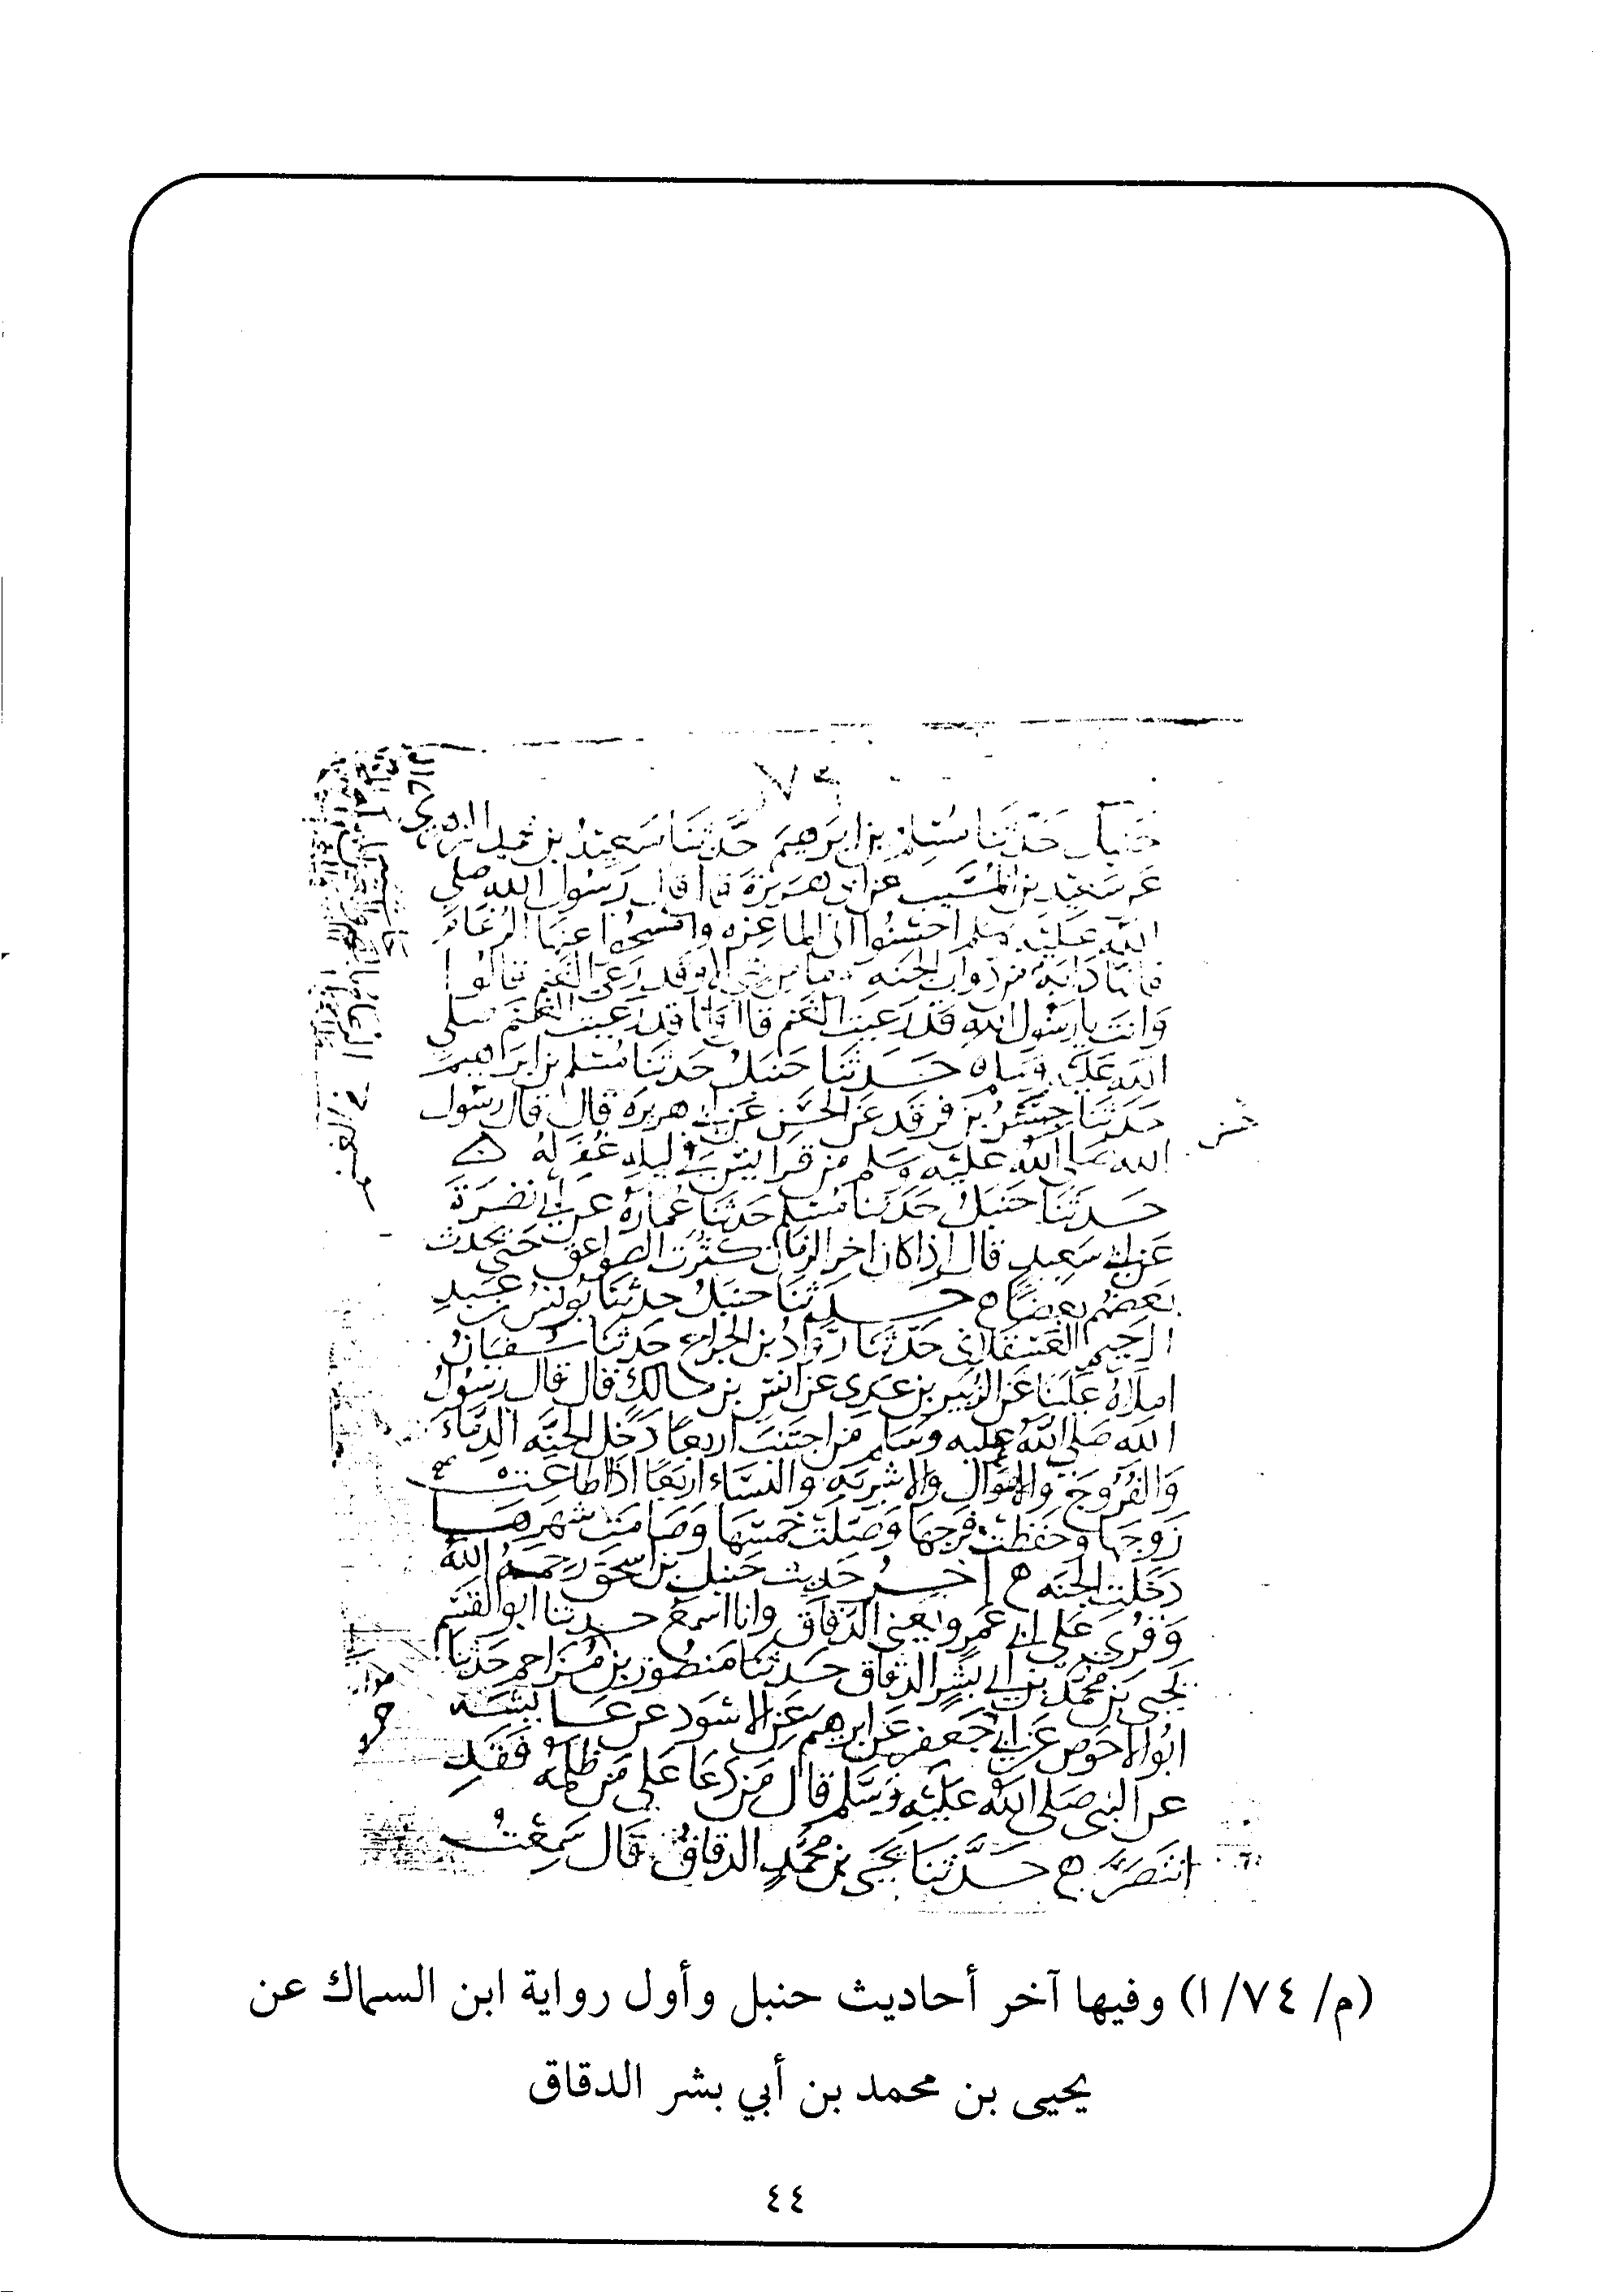 ٧٤
حنبل حَدّثنا مسلم بن ابرهيم حَدَّثنا سَعيدُ بن محمد الزهرى
عن سَعيد بن المسَيب عن ابى هريرة قال قال رسول الله صلى
الله عليه وسلم احسنوا الى الماعزه وامسحوا عنها الرغام
فانها دابة من دواب الجنه ما من نبى الا وقد رعى الغنم قالوا
وانت يا رسول الله قد رعيت الغنم قال وانا قد رعيت الغنم صلى
الله عليه وسلم حَدثنا حَنبلُ حَدثنا مُسلم بن ابراهيم
حدثنا جسر بن فرقد عن الحسن عن ابى هريرة قال قال رسول
الله صلى الله عليه وسلم من قرا يس فى ليله غفر له
حدثنا حنبلُ حَدثنا مُسلم حَدثنا عُمارة عن ابى نضرة
عن ابى سَعيد قال اذا كان اخر الزمان كثرت الصواعق حتى يحدث
بعضهم بعضا ح حدثنا حنبلُ حدثنا يونس بن عبد
الرحيم العسقلانى حَدّثنا رَوّادُ بن الجراح حَدثنا سُفيانُ
املاهُ علَينا عن الزبير بن عَدِى عن انس بن مالك قال قال رسُولُ
الله صَلى اللهُ عليه وسَلم من اجتنبَ اربعًا دَخل الجنَّه الدماءَ
والفُرُوجَ والاموال والاشربَه والنسَاء اربَعًا اذا اطاعت
زَوجها وحَفظت فرجها وصَلت خمسَها وصَامت شهرهَا
دَخلت الجنه ح اخر حَديث حنبل بن اسحق رحمهُ اللهُ
وَقُرِى على ابى عَمرو يَعنى الدقاق وانا اسمع حدثنا ابو القسم
يَحيى بن محمّد بن ابى بشر الدقاق حَدثنا مَنصور بن مُزاحم حَدثنا
ابو الاحوص عن ابى حَمزة عن ابرهيم عن الاسوَد عن عايشه
عن النبى صلى الله عليه وسلم قال من دعا على من ظلمه فَقَدِ
انتصَر ح حدَّثنا يحَيى بن محمَّد الدقاقُ قال سَمِعْتُ
(م/ ١/٧٤) وفيها آخر أحاديث حنبل وأول رواية ابن السماك عن
يحيى بن محمد بن أبي بشر الدقاق
٤٤